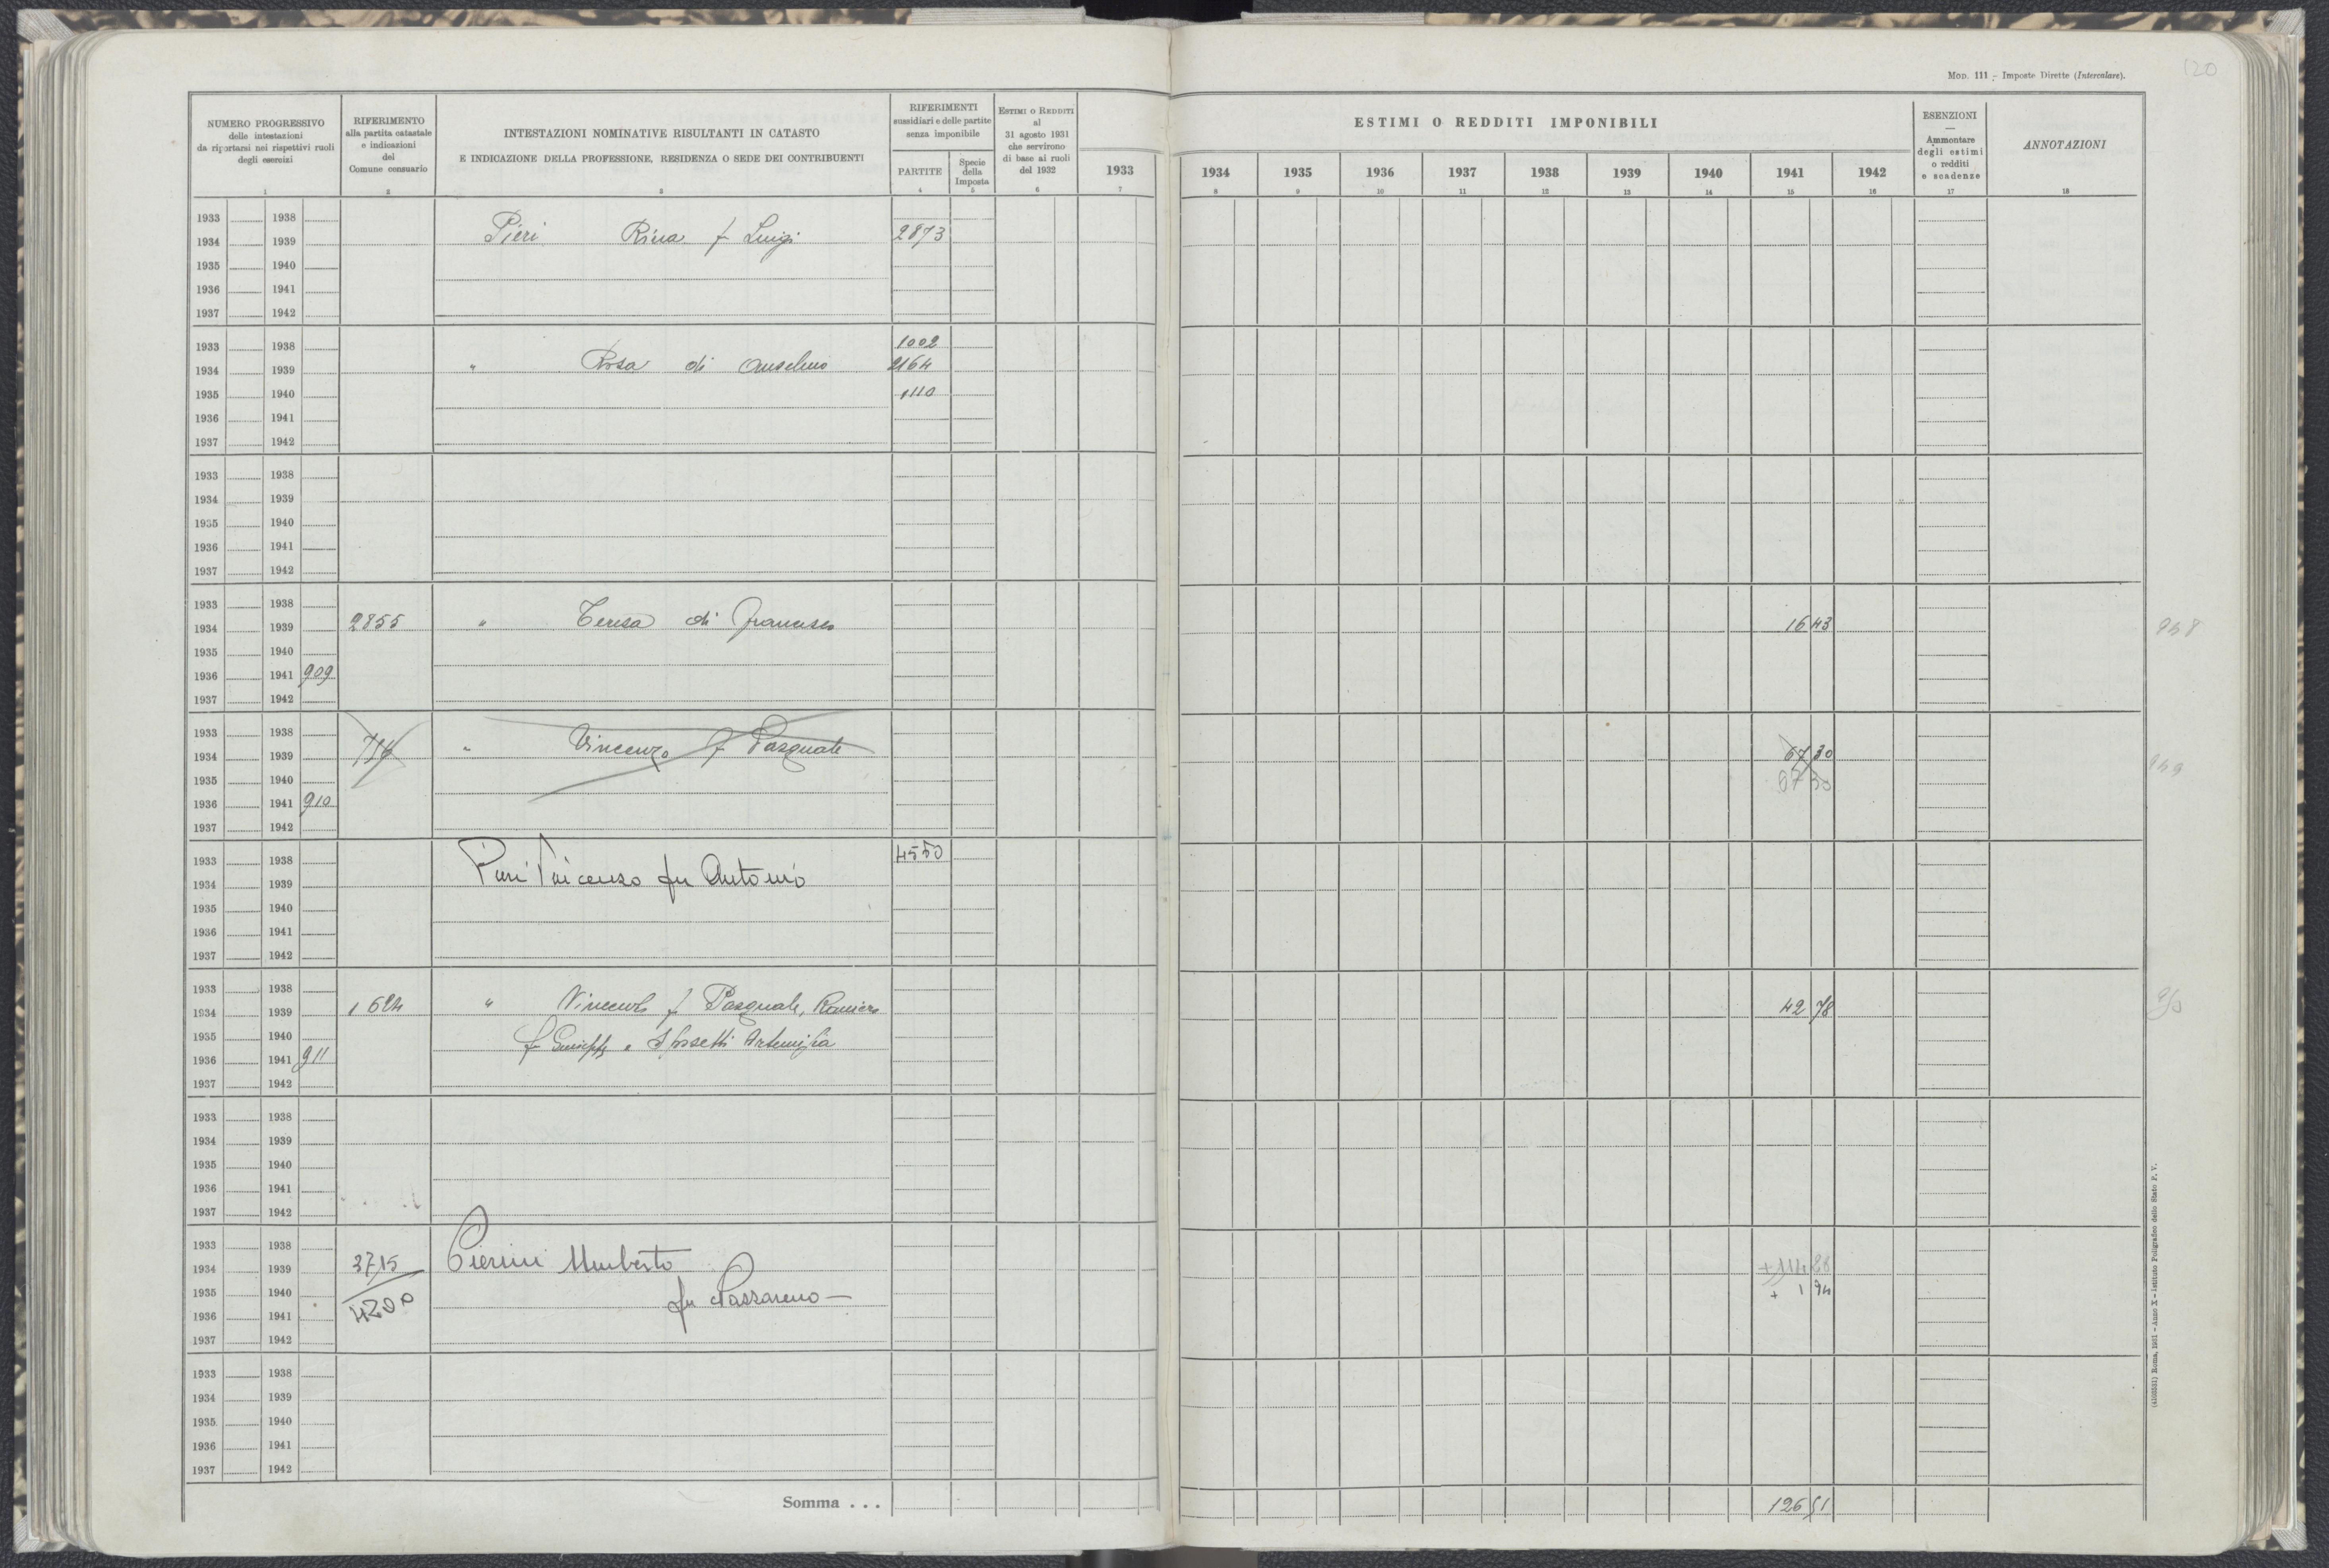 120
MOD. 111 - Imposte Dirette (Intercalare).
NUMERO PROGRESSIVO
delle intestazioni
da riportarsi nei rispettivi ruoli
degli esercizi
1
RIFERIMENTO
alla partita catastale
e indicazioni
del
Comune censuario
2
INTESTAZIONI NOMINATIVE RISULTANTI IN CATASTO
E INDICAZIONE DELLA PROFESSIONE, RESIDENZA O SEDE DEI CONTRIBUENTI
3
RIFERIMENTI
sussidiari e delle partite
senza imponibile
PARTITE
4
Specie
della
Imposta
5
ESTIMI O REDDITI
al
31 agosto 1931
che servirono
di base ai ruoli
del 1932
6
ESTIMI O REDDITI IMPONIBILI
1933 1934 1935 1936 1937 1938 1939 1940 1941 1942
7 8 9 10 11 12 13 14 15 16
ESENZIONI
—
Ammontare
degli estimi
o redditi
e scadenze
17
ANNOTAZIONI
18
1933 1938
1934 1939 Pieri Rina f Luigi 2873
1935 1940
1936 1941
1937 1942
1933 1938 1002
1934 1939 " Rosa di Anselmo 2164
1935 1940 1110
1936 1941
1937 1942
1933 1938
1934 1939
1935 1940
1936 1941
1937 1942
1933 1938
1934 1939 2855 " Teresa di Francesco 16 43
1935 1940
1936 1941 909
1937 1942
1933 1938
1934 1939 " Vincenzo f Pasquale 67 30 949
1935 1940 67 30
1936 1941 910
1937 1942
1933 1938 4550
1934 1939 Pieri Vincenzo fu Antonio
1935 1940
1936 1941
1937 1942
1933 1938
1934 1939 1624 " Vincenzo f Pasquale, Raniero 42 78
1935 1940 fu Giuseppe e Sposetti Artemisia
1936 1941 911
1937 1942
1933 1938
1934 1939
1935 1940
1936 1941
1937 1942
1933 1938
1934 1939 3715 Pierini Umberto
1935 1940 4200 fu Nazzareno — + 1 94
1936 1941
1937 1942
1933 1938
1934 1939
1935 1940
1936 1941
1937 1942
Somma . . . 126 51
(4103531) Roma, 1931 - Anno X - Istituto Poligrafico dello Stato P. V.